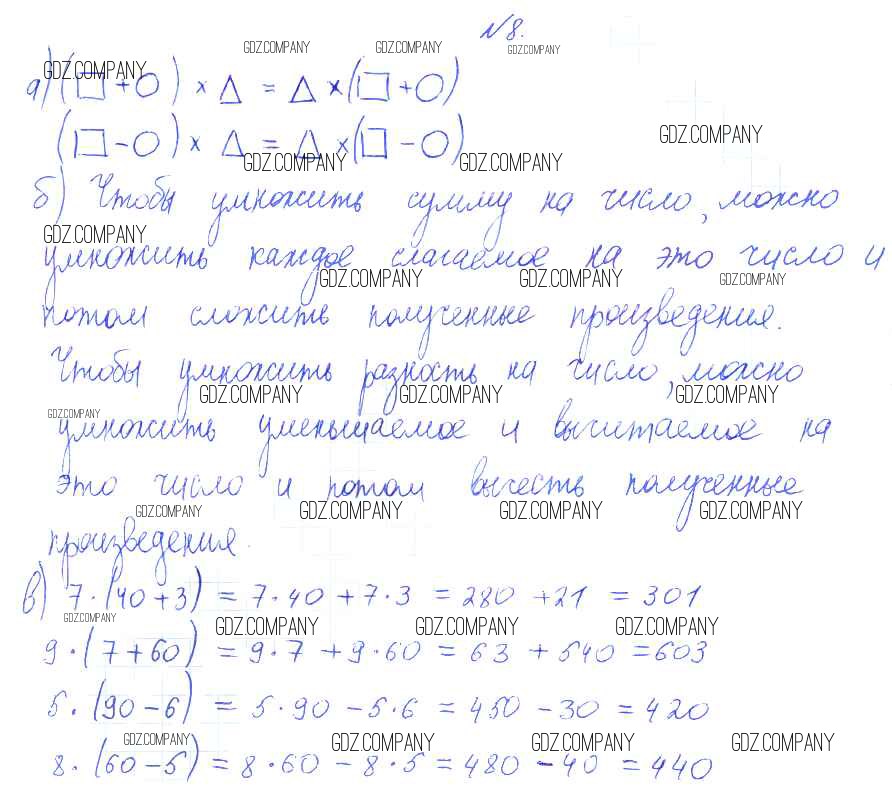 № 8.
GDZ.COMPANY GDZ.COMPANY GDZ.COMPANY
GDZ.COMPANY
а) (□ + ○) × △ = △ × (□ + ○)
GDZ.COMPANY
(□ - ○) × △ = △ × (□ - ○)
GDZ.COMPANY GDZ.COMPANY
б) Чтобы умножить сумму на число, можно
GDZ.COMPANY
умножить каждое слагаемое на это число и
GDZ.COMPANY GDZ.COMPANY GDZ.COMPANY
потом сложить полученные произведения.
Чтобы умножить разность на число, можно
GDZ.COMPANY GDZ.COMPANY GDZ.COMPANY
GDZ.COMPANY
умножить уменьшаемое и вычитаемое на
это число и потом вычесть полученные
GDZ.COMPANY GDZ.COMPANY GDZ.COMPANY GDZ.COMPANY
произведения.
в) 7 · (40 + 3) = 7 · 40 + 7 · 3 = 280 + 21 = 301
GDZ.COMPANY GDZ.COMPANY GDZ.COMPANY GDZ.COMPANY
9 · (7 + 60) = 9 · 7 + 9 · 60 = 63 + 540 = 603
5 · (90 - 6) = 5 · 90 - 5 · 6 = 450 - 30 = 420
GDZ.COMPANY GDZ.COMPANY GDZ.COMPANY GDZ.COMPANY
8 · (60 - 5) = 8 · 60 - 8 · 5 = 480 - 40 = 440